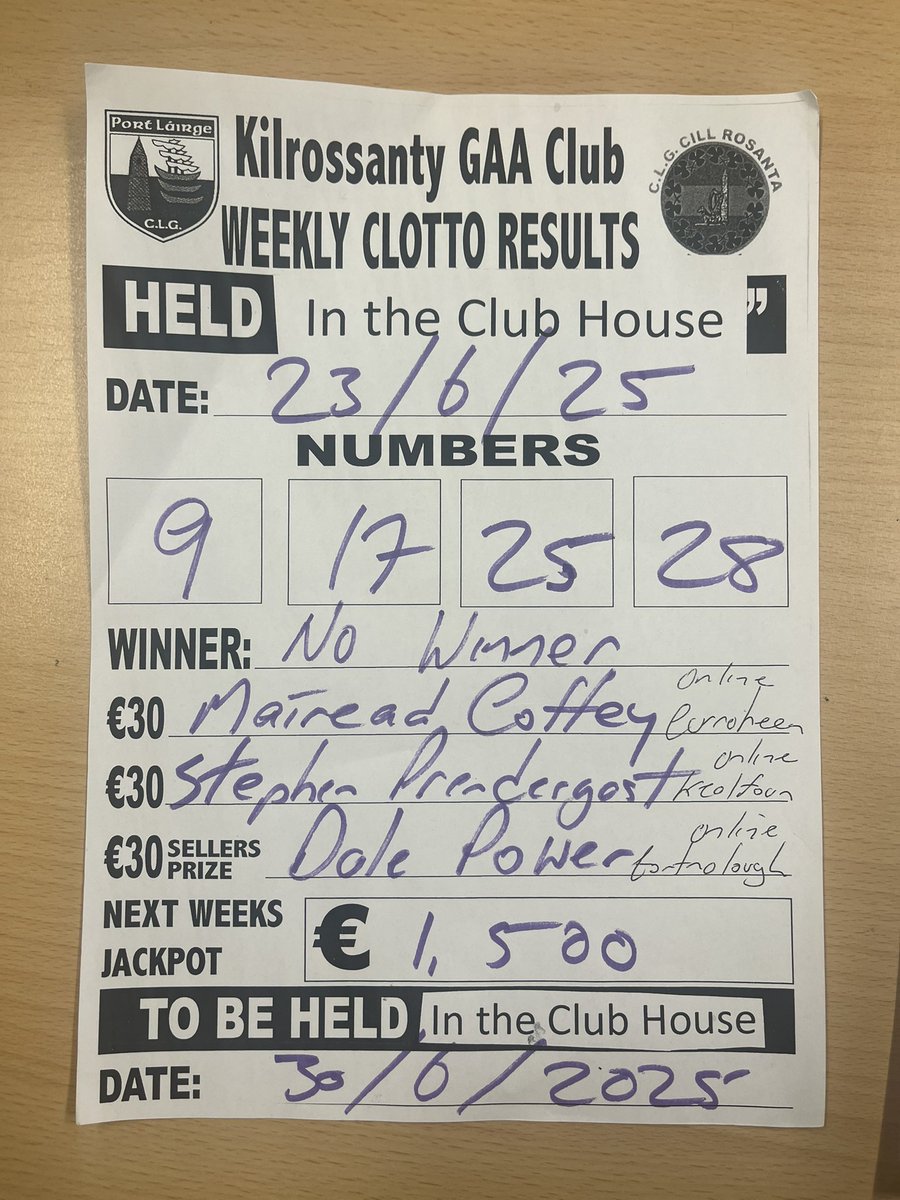 Port Láirge
C.L.G.
Kilrossanty GAA Club
C.L.G. CILL ROSANTA
WEEKLY CLOTTO RESULTS
HELD In the Club House ”
DATE: 23/6/25
NUMBERS
9 17 25 28
WINNER: No Winner
€30 Maíread Coffey online
€30 Stephen Prendergast online
€30 SELLERS PRIZE Dale Power online
NEXT WEEKS JACKPOT € 1,500
TO BE HELD In the Club House
DATE: 30/6/2025